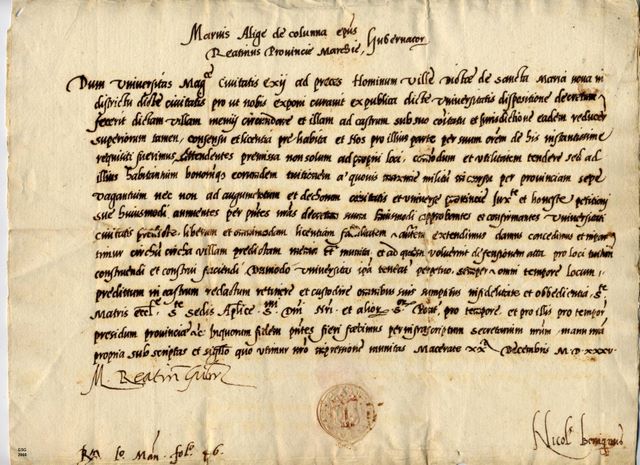 Marius Alige de columna epūs
Reatinus Provincie Marchie, Gubernator
Dum Universitas Magce Civitatis Exij ad preces Hominum Ville nōcte de Sancta Maria nova in
districtu dicte civitatis prout nobis exponi curavit ex publica dicte Universitatis dispositione decretum
fecerit dictam villam menijs circundare et illam ad castrum sub suo comitatu et Jurisdictione eadem reducere
superiorum tamen, consensu et licentia prehabita et Nos pro illius parte per suum orēm de his instantissime
requisiti fuerimus Attendentes premissa non solum ad proprij loci, comōdum et utilitatem tendere sed ad
illius habitantium bonorūqe eorundem tuitionem a quovis militū per provinciam sepe
vagantium nec non ad augumentum et civitatis et universe provincie Juxte et honeste petitionj
sue huiusmodi annuentes per pñtes decretum huiusmodi approbantes et confirmantes Universitati
civitatis liberum et omnimodam licentiam facultatem et extendimus damus concedimus et
circa villam predictam menia et munita, et ad quam voluerint defensionem atta pro loci tuitione
construendi et construi faciendi Dumodo Universitas ipā teneat perpetuo, semper et omni tempore Locum,
predictum in castrum redactum retinere et custodire omnibus suis sumptibus in fidelitate et obbedientia Ste
Matris eccle Ste Sedis Aplice Smi Dñi Nri et alior pro tempore, et pro illis pro tempori
presidum provincie &c Inquorum fidem pñtes fieri fecimus per infrascriptum Secretarium nrum manu mā
propria subscriptas et sigillo quo utimur nrō impressione munitas Macerate xxa Decembris M D xxxv
M. Reatin Gubr
Nicol. Benignus
Rta Lo Man. fol. 46.